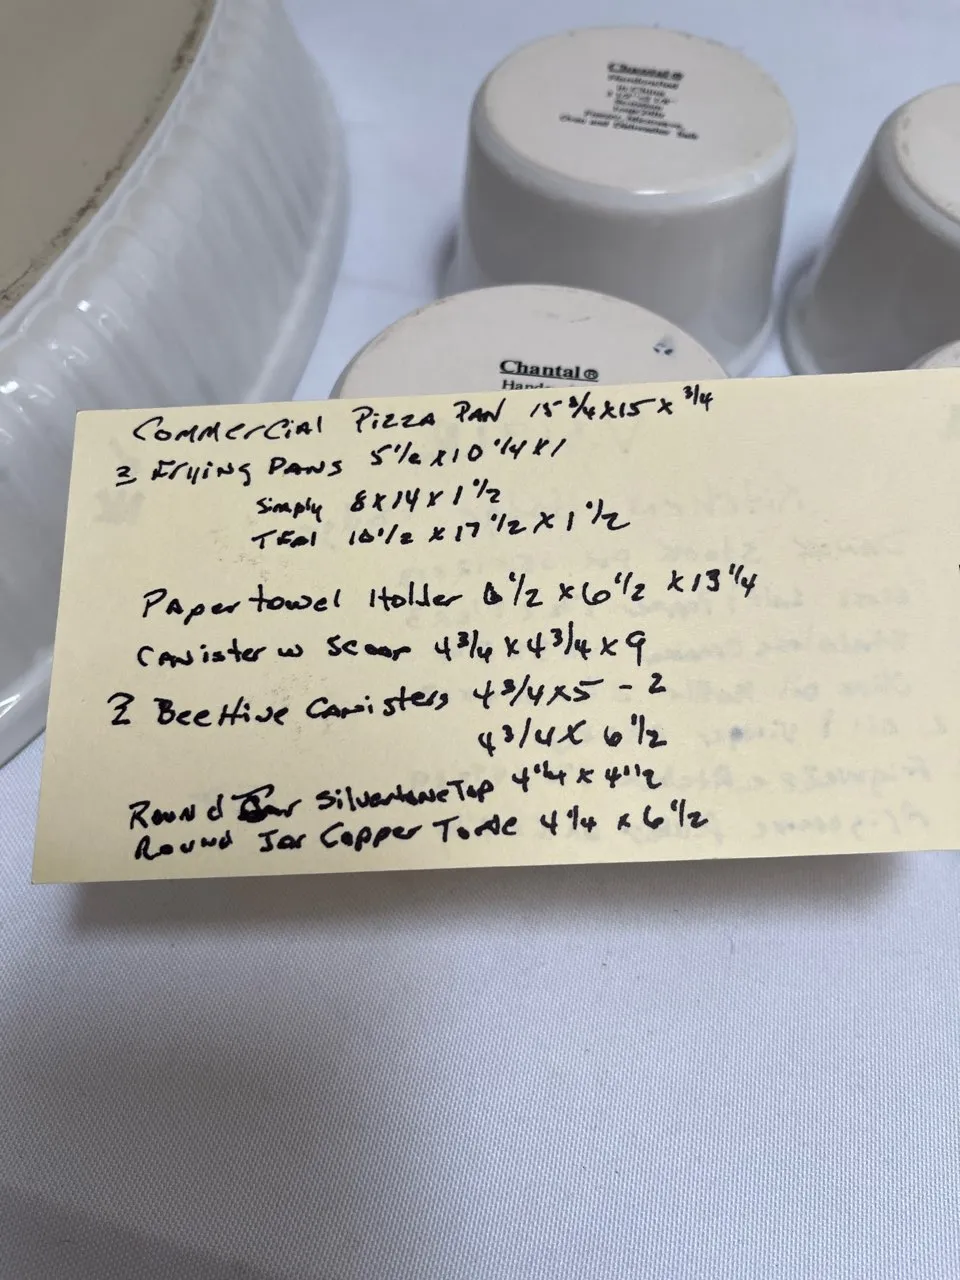 Chantal®
Chantal®
Commercial Pizza Pan 15 3/4 x 15 x 3/4
3 Frying Pans 5 1/2 x 10 1/4 x 1
Simply 8 x 14 x 1 1/2
TFal 10 1/2 x 17 1/2 x 1 1/2
Paper towel Holder 6 1/2 x 6 1/2 x 13 1/4
Canister w Scoop 4 3/4 x 4 3/4 x 9
2 BeeHive Canisters 4 3/4 x 5 - 2
4 3/4 x 6 1/2
Round Jar SilvertoneTop 4 1/4 x 4 1/2
Round Jar Copper Tone 4 1/4 x 6 1/2